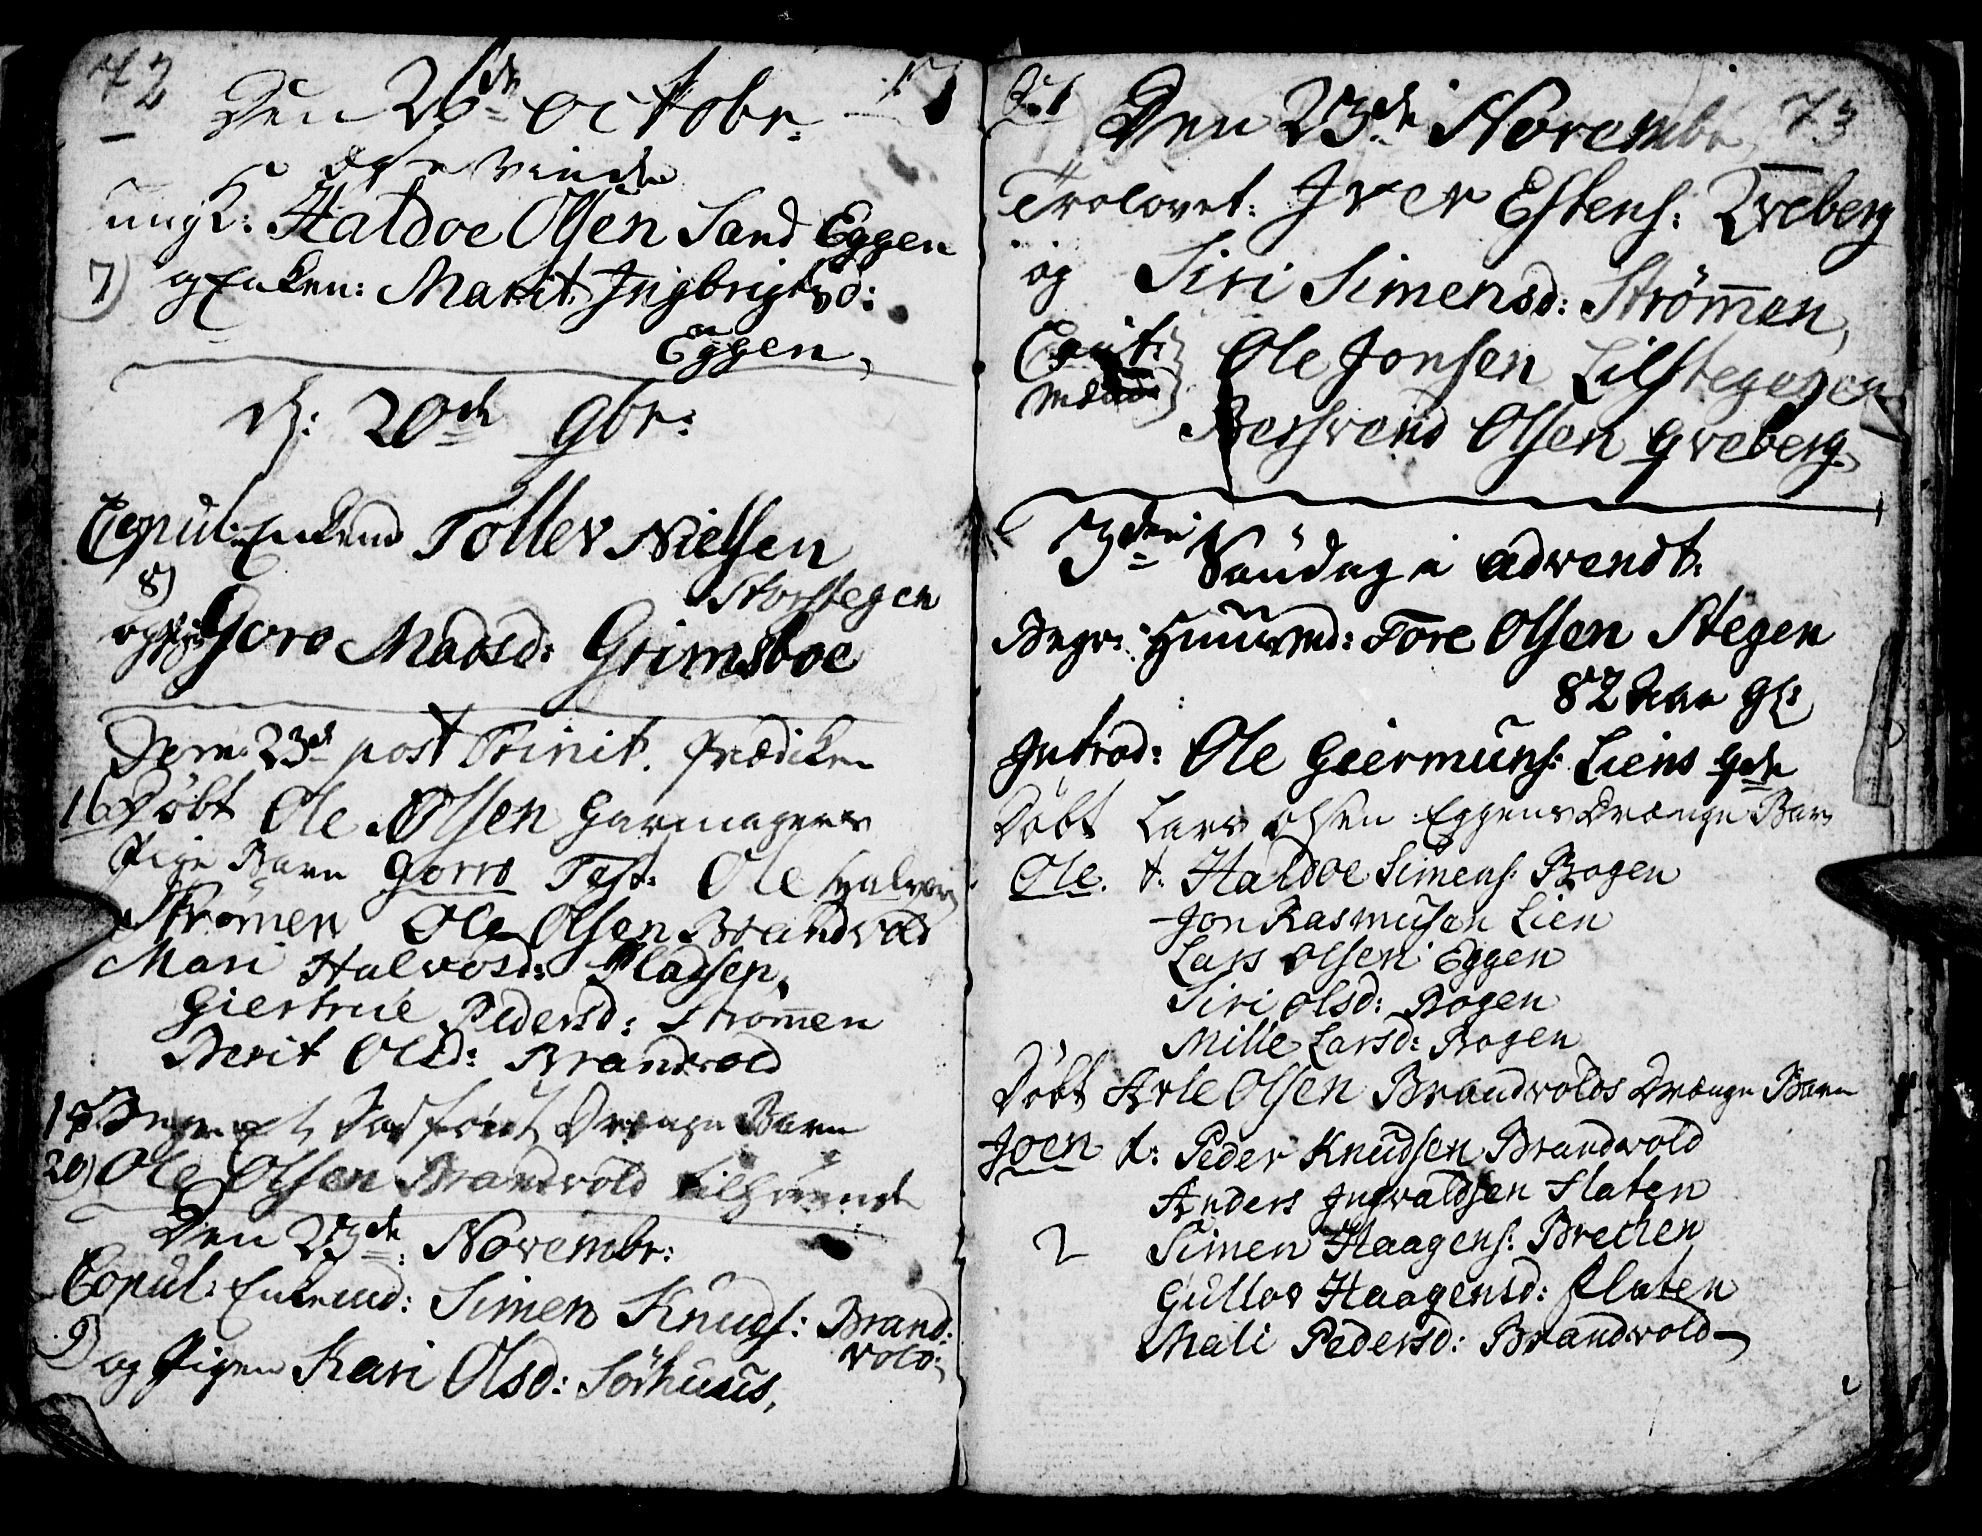 72
Den 26de Octobr. 17
ungK: Haldoe Olsen Sand Eggen
7) og Enken: Marit Ingbrigtsd:
Eggen,
d: 20de 9br:
Copul: Enkem Tollev Nielsen
8)
Storstegen
og Goro Madsd: Grimsboe
Dom: 23de post Trinit. Prædiken
16 Döbt Ole Olsen Garmagerens
Pige Barn Gorro Test: Ole Halvors
Strömen Ole Olsen Brandvold
Mari Halvosd: Pladsen,
Giertrue Pedersd: Strömen
Berit Olsd: Brandvold
Drænge Barn
20) Ole Olsen Brandvold
Den 23de Novembr:
Copul: Enkemd: Simen Knuds: Brand:
vold,
9) og Pigen Kari Olsd: Sörhuus,
Den 23de Novembr 73
Trolovet: Iver Estens: Qveberg
og Siri Simensd: Strömen,
Caut: Ole Jonsen Lilstegegen
Bersvend Olsen Qveberg
3die Söndag i advendt.
Begr: Huusmd: Tore Olsen Stegen
82 Aar gl:
Introd: Ole Giermuns: Liens
Döbt Lars Olsen Eggens Drænge Barn
Ole. t. Haldoe Simens: Bogen
Jon Rasmusen Lien
Lars Olsen Eggen
Siri Olsd: Bogen
Mille Larsd: Bogen
Döbt Arle Olsen Brandvolds Drænge Barn
Joen t: Peder Knudsen Brandvold
Anders Ingvaldsen Flaten
2 Simen Haagens: Brecken
Gullov Haagensd: Flaten
Mali Pedersd: Brandvold